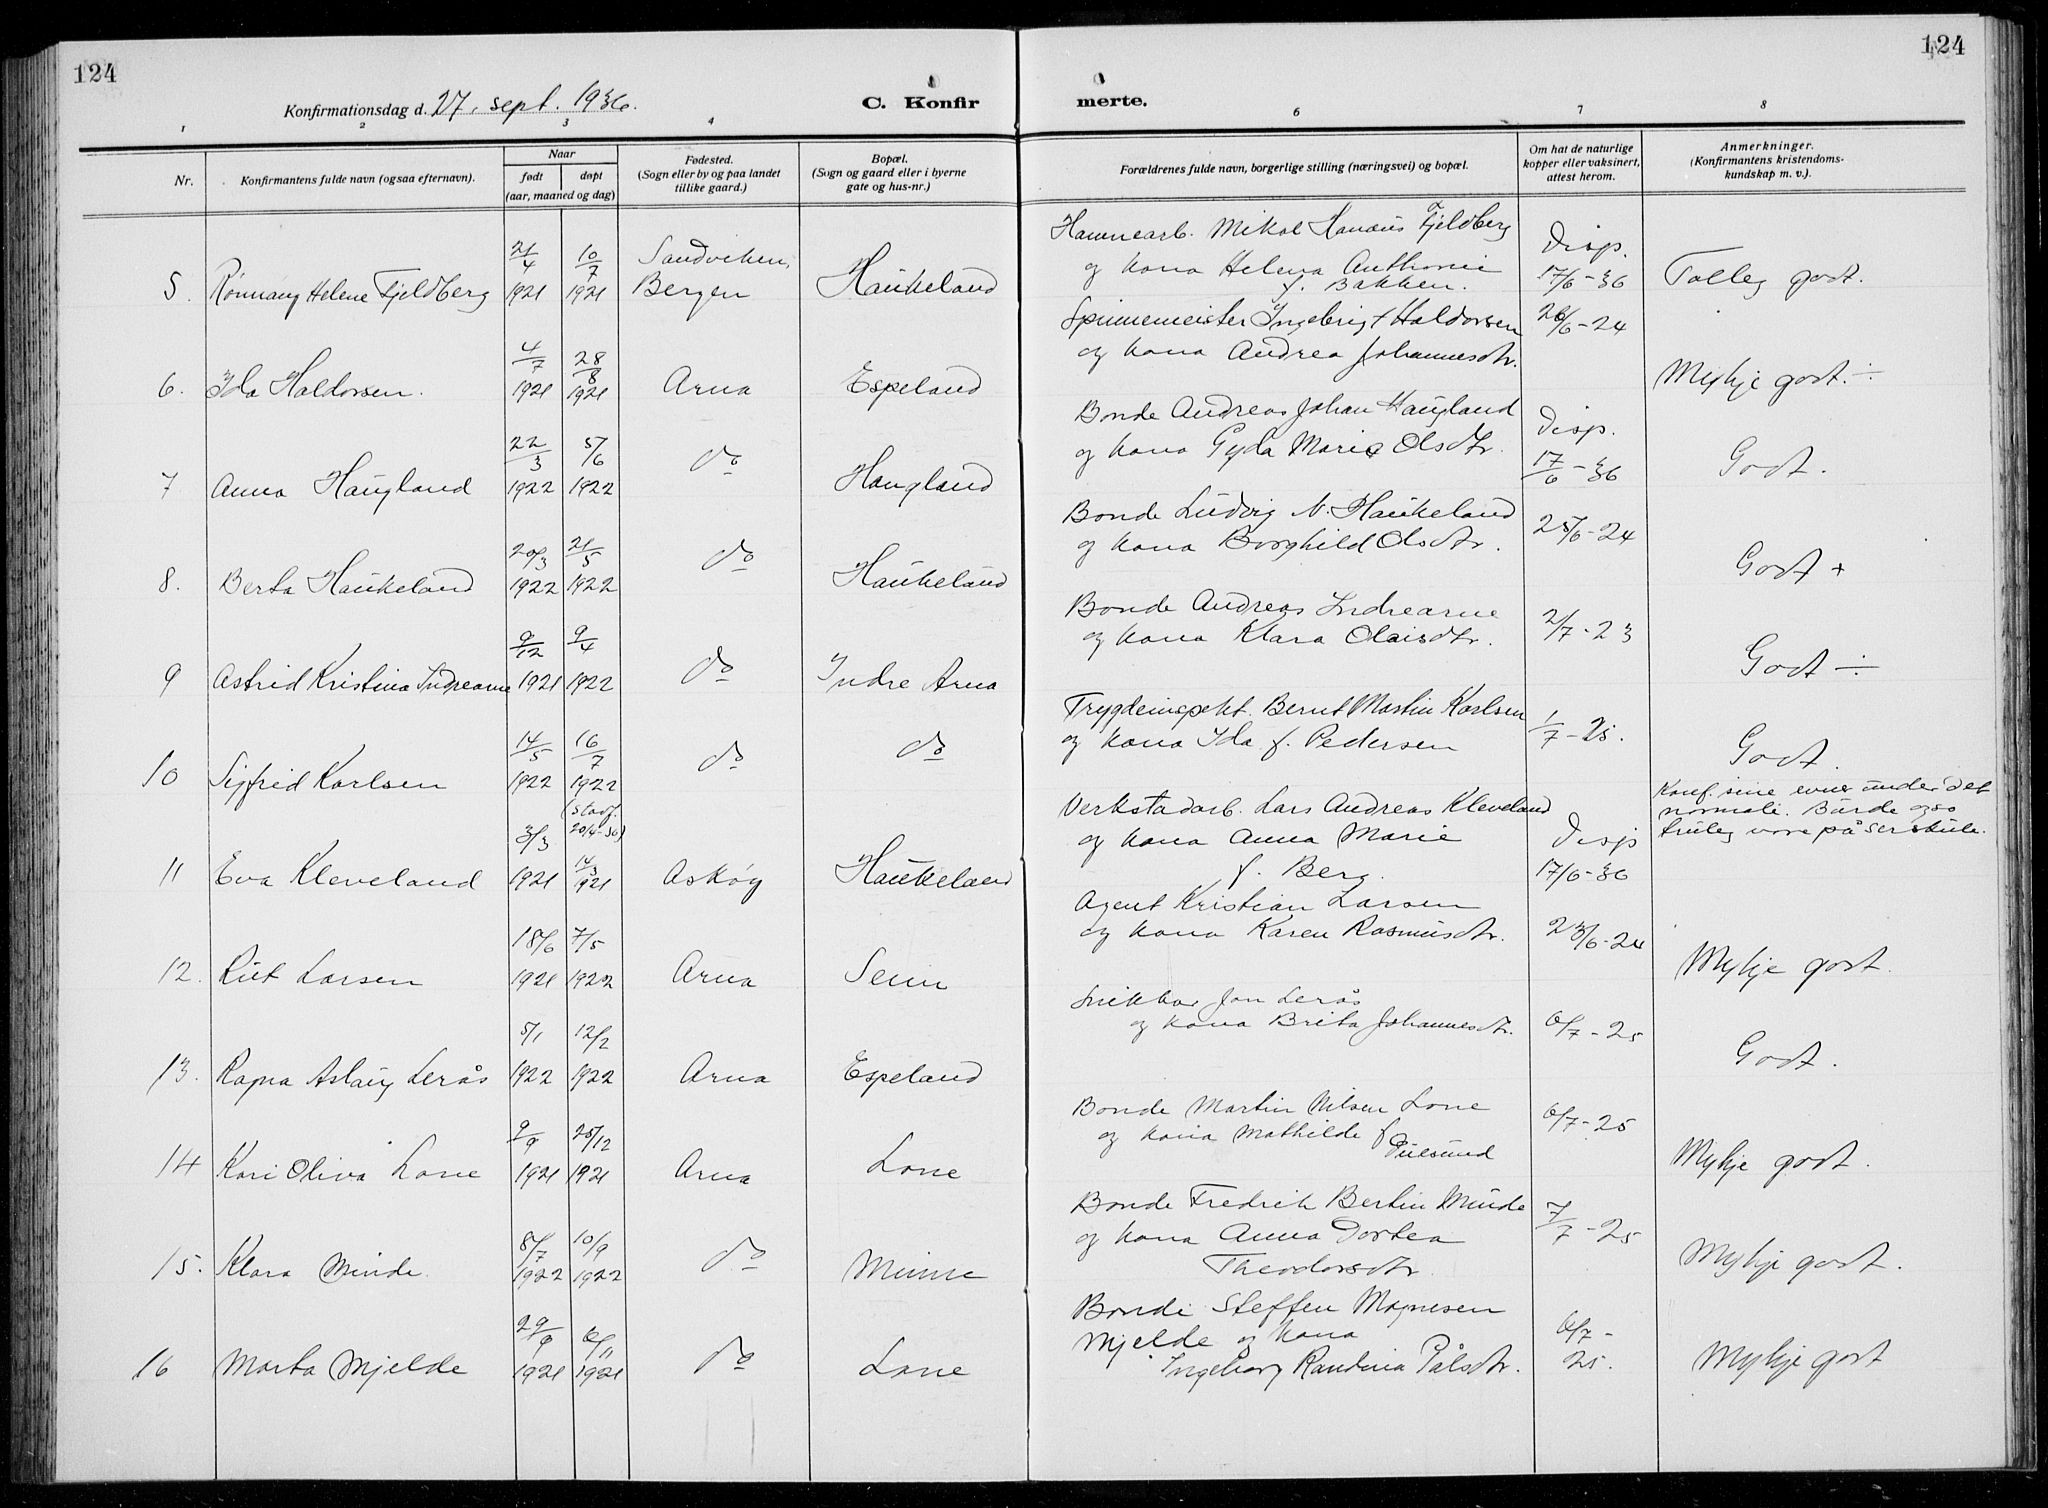 124
124
Konfirmationsdag d. 27. sept. 1936.
C. Konfir
merte.
1 2 3 4 6 7 8
Nr.
Konfirmantens fulde navn (ogsaa efternavn).
Naar
født
døpt
(aar, maaned og dag)
Fødested.
(Sogn eller by og paa landet
tillike gaard.)
Bopæl.
(Sogn og gaard eller i byerne
gate og hus-nr.)
Forældrenes fulde navn, borgerlige stilling (næringsvei) og bopæl.
Om hat de naturlige
kopper eller vaksinert,
attest herom.
Anmerkninger.
(Konfirmantens kristendoms-
kundskap m. v.).
5. Rønnaug Helene Fjeldberg 21/4 1921 10/7 1921 Sandviken, Bergen Haukeland
Mikal Fjeldberg
og kona Helena Anthonie
f. Bakken.
Disp.
17/6-36
Tolleg godt.
6. Ida Haldorsen. 4/7 1921 28/8 1921 Arna Espeland
Spinnemeister Ingebrigt Haldorsen
og kona Andrea Johannesdtr.
26/6-24
Mykje godt. ÷
7 Anna Haugland 22/3 1922 5/6 1922 do Haugland
Bonde Andreas Johan Haugland
og kona Gyda Marie Olsdtr.
Disp.
17/6-36
Godt.
8. Berta Haukeland 20/3 1922 21/5 1922 do Haukeland
Bonde Ludvig N. Haukeland
og kona Borghild Olsdtr.
25/6-24
Godt +
9 Astrid Kristina Indrearne 9/12 1921 9/4 1922 do Indre Arna
Bonde Andreas Indrearne
og kona Klara Olaisdtr.
2/7-23
Godt ÷
10 Sigfrid Karlsen 14/5 1922 16/7 1922 do do
Trygdeinspekt. Bernt Martin Karlsen
og kona Ida f. Pedersen
1/7-25.
Godt.
11 Eva Kleveland 3/3 1921 14/3 1921 (stadf. 20/4-36) Askøy Haukeland
Verkstadarb. Lars Andreas Kleveland
og kona Anna Marie
f. Berg.
Disp
17/6-36
Konf. sine evner under det
normale. Burde også
truleg vore på serskule.
12. Rut Larsen 18/6 1921 7/5 1922 Arna Seim
Agent Kristian Larsen
og kona Karen Rasmusdtr.
23/6-24
Mykje godt.
13. Ragna Aslaug Lerås 5/1 1922 12/2 1922 Arna Espeland
Snikkar Jon Lerås
og kona Brita Johannesdtr.
6/7-25
Godt.
14 Kari Oliva Lone 9/9 1921 25/12 1921 Arna Lone
Bonde Martin Nilsen Lone
og kona Mathilde f.
6/7-25
Mykje godt.
15. Klara Minde. 8/7 1922 10/9 1922 do Minne
Bonde Fredrik Bertin Minde
og kona Anna Dortea
Theodorsdtr.
7/7-25
Mykje godt.
16 Marta Mjelde 29/9 1921 6/11 1921 do Lone
Bonde Steffen Magnesen
Mjelde og kona
Ingeborg Randina Pålsdtr.
6/7-
25.
Mykje godt